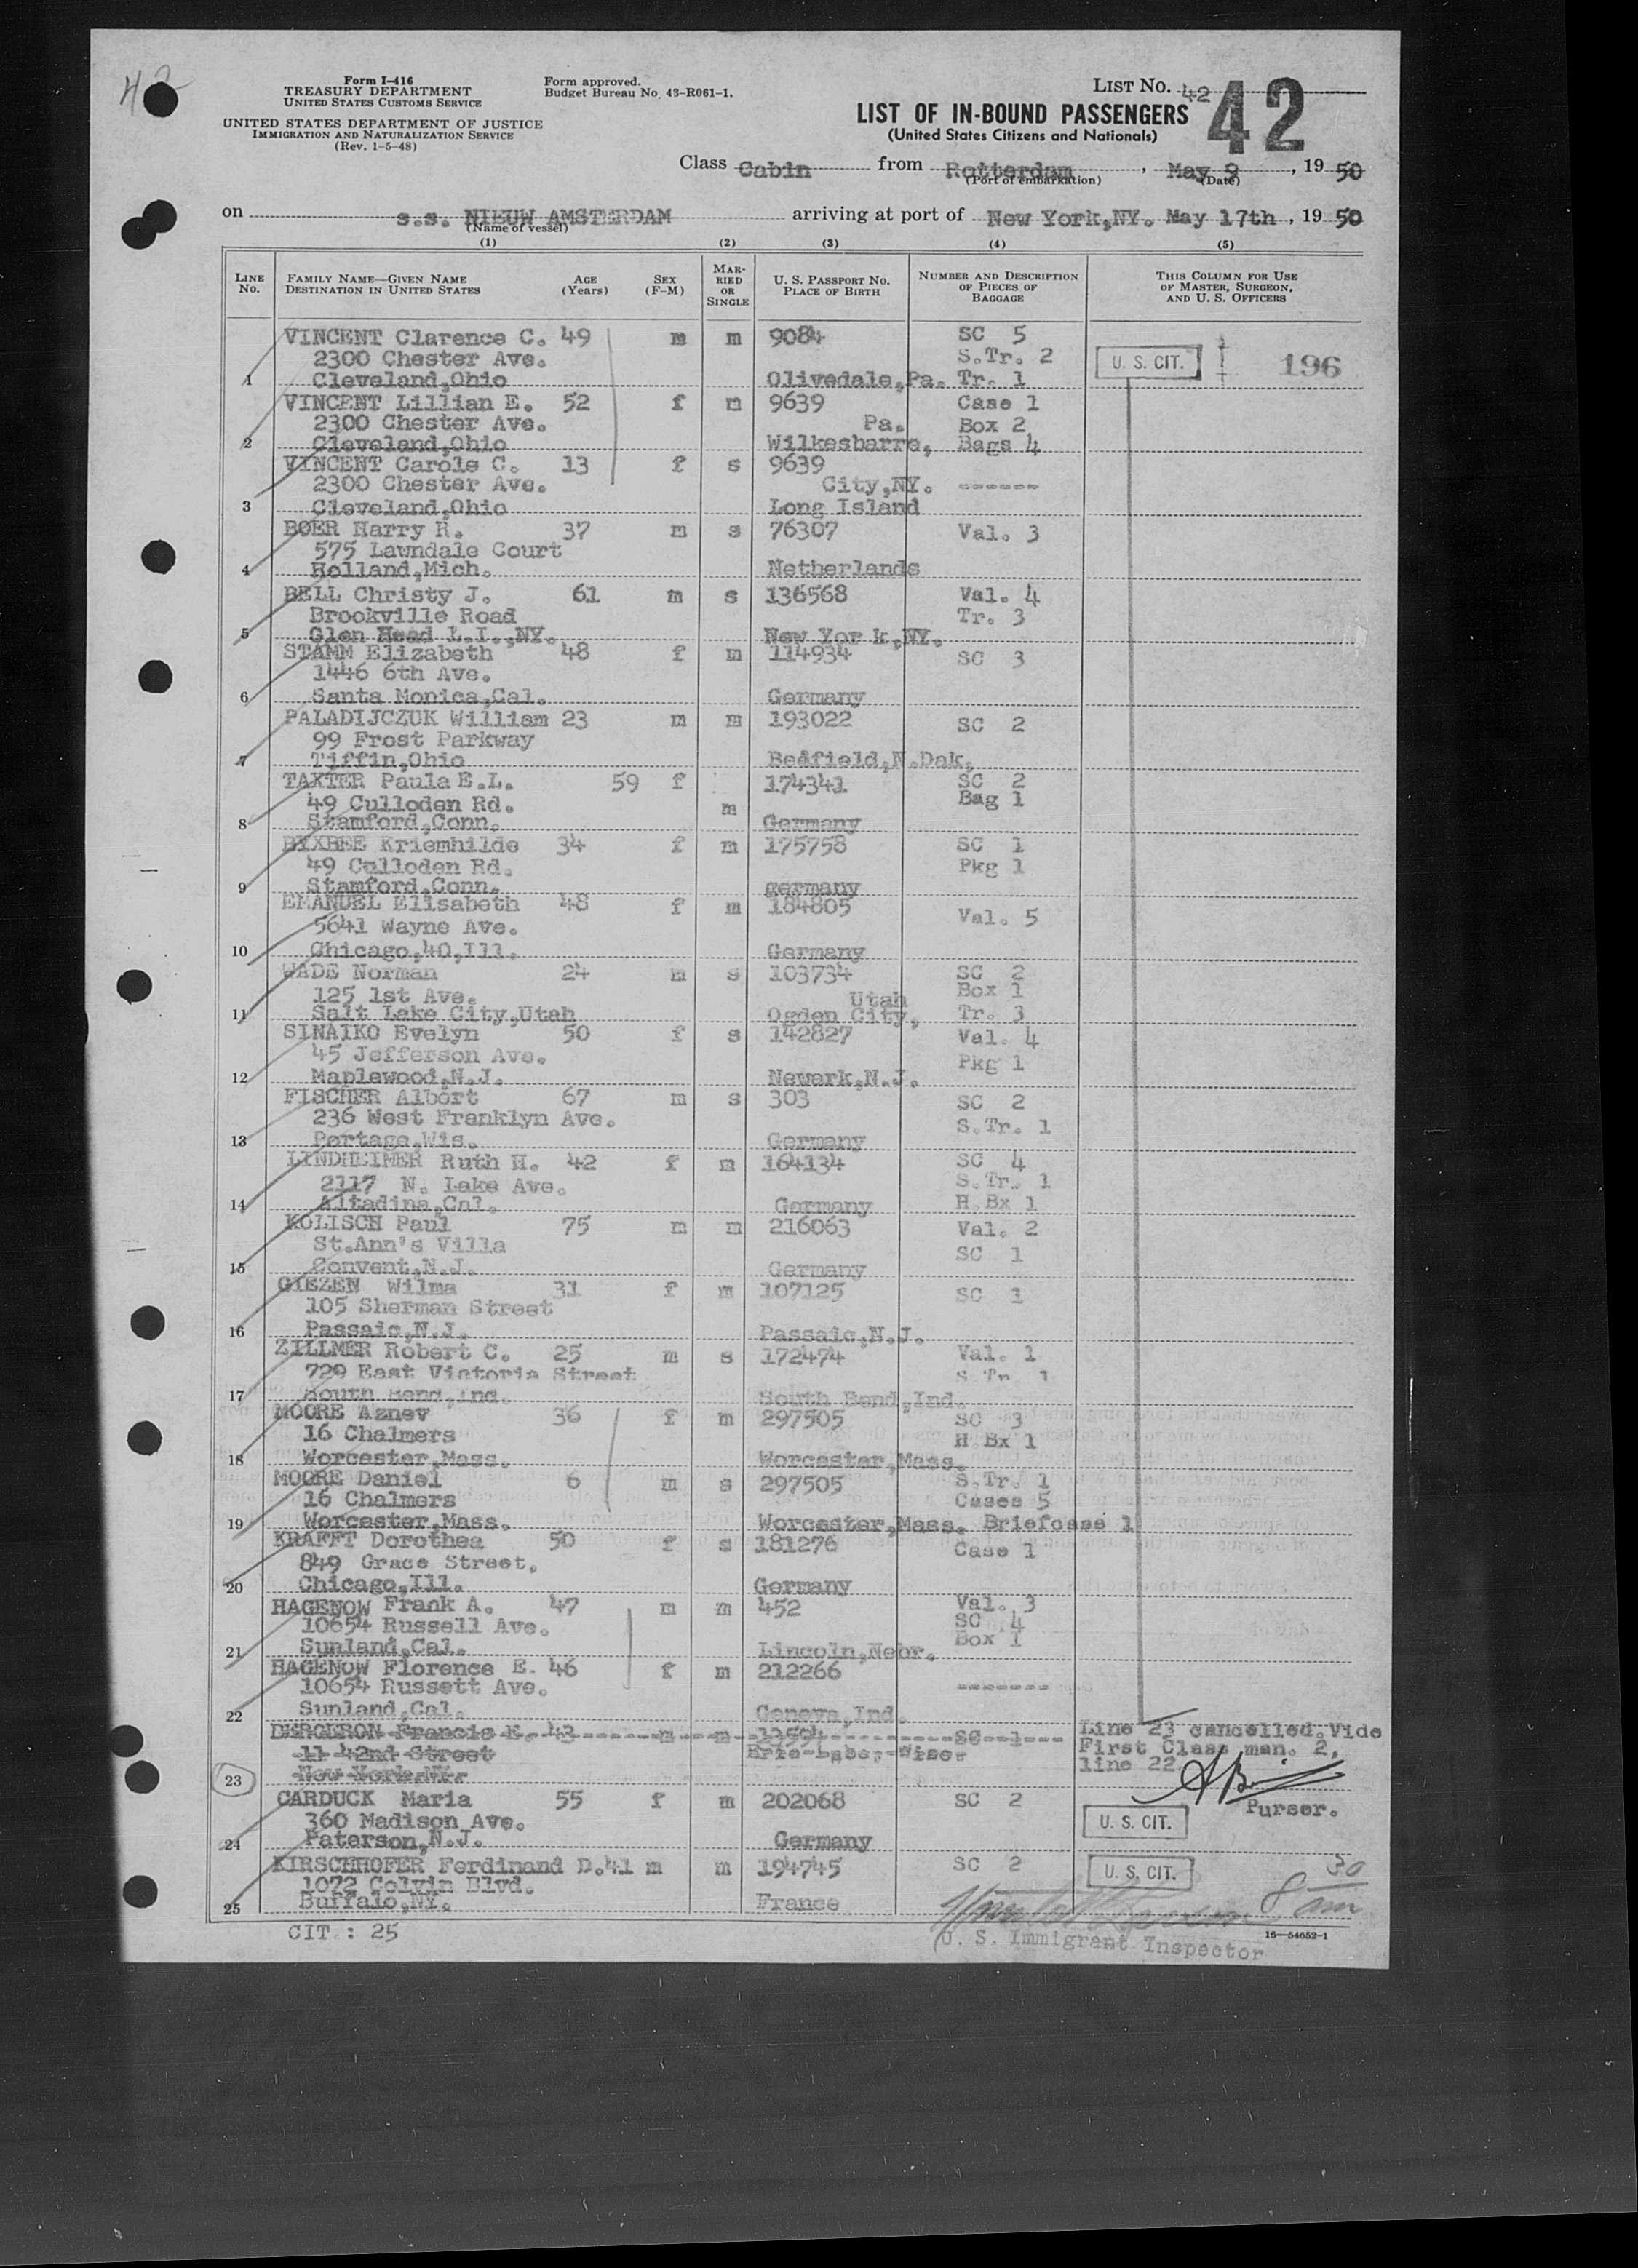 42
Form I-416
TREASURY DEPARTMENT
UNITED STATES CUSTOMS SERVICE
UNITED STATES DEPARTMENT OF JUSTICE
IMMIGRATION AND NATURALIZATION SERVICE
(Rev. 1-5-48)
Form approved.
Budget Bureau No. 43-R061-1.
LIST NO. 42
42
LIST OF IN-BOUND PASSENGERS
(United States Citizens and Nationals)
Class Cabin from Rotterdam, May 9, 19 50
(Port of embarkation) (Date)
on s.s. NIEUW AMSTERDAM arriving at port of New York,NY. May 17th, 19 50
(Name of vessel)
(1) (2) (3) (4) (5)
LINE No. FAMILY NAME—GIVEN NAME DESTINATION IN UNITED STATES AGE (Years) SEX (F-M) MARRIED OR SINGLE U. S. PASSPORT NO. PLACE OF BIRTH NUMBER AND DESCRIPTION OF PIECES OF BAGGAGE THIS COLUMN FOR USE OF MASTER, SURGEON, AND U. S. OFFICERS
VINCENT Clarence C. 49 m m 9084 SC 5
2300 Chester Ave. S.Tr. 2 U. S. CIT. 196
1 Cleveland,Ohio Olivedale,Pa. Tr. 1
VINCENT Lillian E. 52 f m 9639 Case 1
2300 Chester Ave. Pa. Box 2
2 Cleveland,Ohio Wilkesbarre, Bags 4
VINCENT Carole C. 13 f s 9639
2300 Chester Ave. City,NY. ------
3 Cleveland,Ohio Long Island
BOER Harry R. 37 m s 76307 Val. 3
575 Lawndale Court
4 Holland,Mich. Netherlands
BELL Christy J. 61 m s 136568 Val. 4
Brookville Road Tr. 3
5 Glen Head L.I.,NY. New Yor k,NY.
STAMM Elizabeth 48 f m 114934 SC 3
1446 6th Ave.
6 Santa Monica,Cal. Germany
PALADIJCZUK William 23 m m 193022 SC 2
99 Frost Parkway
7 Tiffin,Ohio Bedfield,N.Dak.
TAXTER Paula E.L. 59 f 174341 SC 2
49 Culloden Rd. m Bag 1
8 Stamford,Conn. Germany
BYXBEE Kriemhilde 34 f m 175758 SC 1
49 Culloden Rd. Pkg 1
9 Stamford,Conn. germany
EMANUEL Elisabeth 48 f m 184805 Val. 5
5641 Wayne Ave.
10 Chicago,40,Ill. Germany
WADE Norman 24 m s 103734 SC 2
125 1st Ave. Utah Box 1
11 Salt Lake City,Utah Ogden City, Tr. 3
SINAIKO Evelyn 50 f s 142827 Val. 4
45 Jefferson Ave. Pkg 1
12 Maplewood,N.J. Newark,N.J.
FISCHER Albert 67 m s 303 SC 2
236 West Franklyn Ave. S.Tr. 1
13 Portage,Wis. Germany
LINDHEIMER Ruth H. 42 f m 164134 SC 4
2117 N. Lake Ave. S.Tr. 1
14 Altadina,Cal. Germany H.Bx 1
KOLISCH Paul 75 m m 216063 Val. 2
St.Ann's Villa SC 1
15 Convent,N.J. Germany
GIEZEN Wilma 31 f m 107125 SC 1
105 Sherman Street
16 Passaic,N.J. Passaic,N.J.
ZILLMER Robert C. 25 m s 172474 Val. 1
729 East Victoria Street S Tr. 1
17 South Bend,Ind. South Bend,Ind.
MOORE Agnev 36 f m 297505 SC 3
16 Chalmers H Bx 1
18 Worcester,Mass. Worcester,Mass.
MOORE Daniel 6 m s 297505 S.Tr. 1
16 Chalmers Cases 5
19 Worcester,Mass. Worcester,Mass. Briefcase 1
KRAFFT Dorothea 50 f s 181276 Case 1
849 Grace Street,
20 Chicago,Ill. Germany
HAGENOW Frank A. 47 m m 452 Val. 3
10654 Russell Ave. SC 4
21 Sunland,Cal. Lincoln,Nebr. Box 1
HAGENOW Florence E. 46 f m 212266
10654 Russett Ave. -------
22 Sunland,Cal. Geneva,Ind.
DERGERON Francis K. 43 m m 13594 SC 1 Line 23 cancelled.Vide
11 42nd Street First Class man. 2,
23 New York,NY. line 22
CARDUCK Maria 55 f m 202068 SC 2 Purser.
360 Madison Ave. U. S. CIT.
24 Paterson,N.J. Germany
KIRSCHHOFER Ferdinand D.41 m m 194745 SC 2 U. S. CIT. 8 30 am
1072 Colvin Blvd.
25 Buffalo,NY. France
CIT.: 25
U. S. Immigrant Inspector
16—54652-1